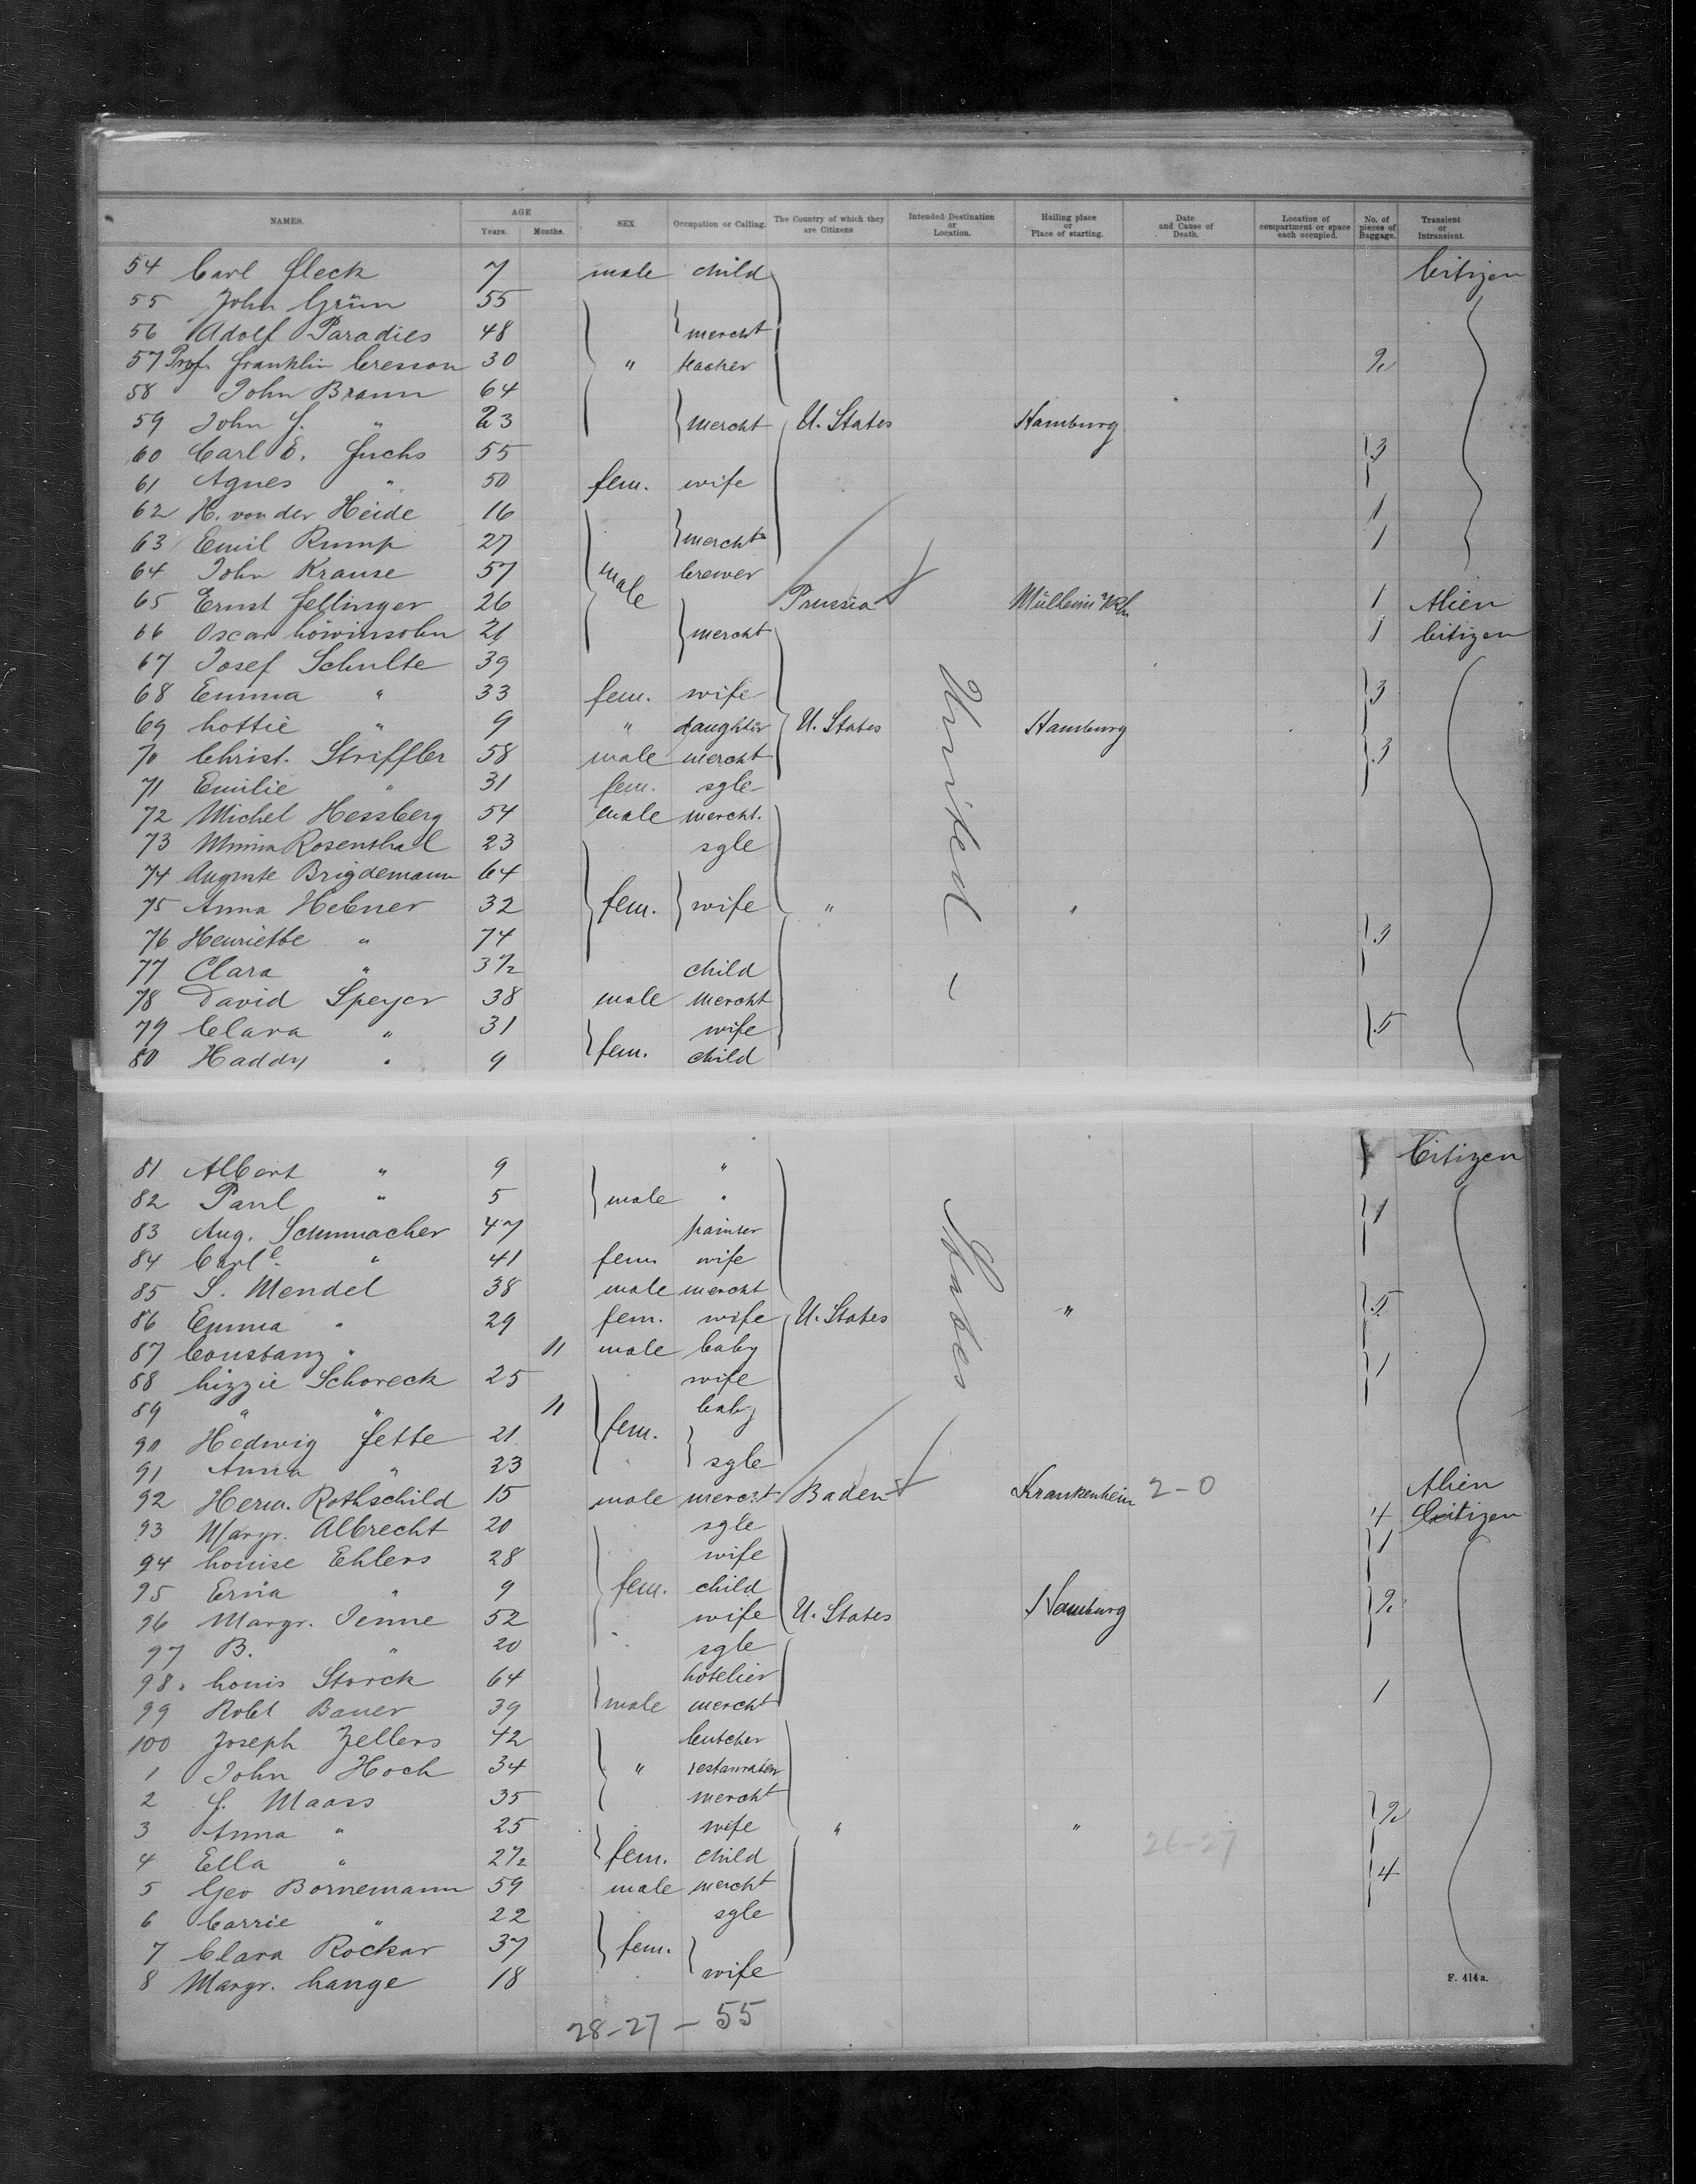 NAMES. AGE Years. Months. SEX Occupation or Calling. The Country of which they are Citizens Intended Destination or Location. Hailing place or Place of starting. Date and Cause of Death. Location of compartment or space each occupied. No. of pieces of Baggage. Transient or Intransient.
54 Carl Fleck 7 male child Citizen
55 John Grün 55
56 Adolf Paradies 48 mercht
57 Prof. Franklin Cresson 30 " teacher 2
58 John Braun 64
59 John F. " 23 mercht U. States Hamburg
60 Carl E. Fuchs 55 3
61 Agnes " 50 fem. wife
62 H. von der Heide 16 1
63 Emil Rump 27 mercht 1
64 John Krause 57 male brewer
65 Ernst Fellinger 26 Prussia Mülheim a/Rh 1 Alien
66 Oscar Löwinsohn 21 mercht 1 Citizen
67 Josef Schulte 39
68 Emma " 33 fem. wife 3
69 Lottie " 9 " daughter U. States Hamburg
70 Christ. Striffler 58 male mercht 3
71 Emilie " 31 fem. sgle
72 Michel Hessberg 54 male mercht.
73 Minna Rosenthal 23 sgle
74 Auguste Brigdemann 64
75 Anna Hebner 32 fem. wife " "
76 Henriette " 74 3
77 Clara " 3 1/2 child
78 David Speyer 38 male mercht
79 Clara " 31 wife 5
80 Haddy " 9 fem. child
United States
81 Albert " 9 " Citizen
82 Paul " 5 male " 1
83 Aug. Schumacher 47 painter
84 Carle " 41 fem. wife
85 S. Mendel 38 male mercht
86 Emma " 29 fem. wife U. States " 5
87 Constanz " 11 male baby
88 Lizzie Schoreck 25 wife 1
89 " " 11 baby
90 Hedwig Fette 21 fem.
91 Anna " 23 sgle
92 Herm. Rothschild 15 male mercht Baden Krankenheim 2-0 Alien
93 Margr. Albrecht 20 sgle 4 Citizen
94 Louise Ehlers 28 wife 1
95 Erna " 9 fem. child
96 Margr. Jenne 52 wife U. States Hamburg 2
97 B. " 20 sgle
98 Louis Storck 64 hotelier
99 Robt Bauer 39 male mercht 1
100 Joseph Zellers 42 butcher
1 John Hoch 34 "
2 J. Maass 35 mercht 2
3 Anna " 25 wife " "
4 Ella " 2 1/2 fem. child 26-27
5 Geo Bornemann 59 male mercht 4
6 Carrie " 22 sgle
7 Clara Rockar 37 fem.
8 Margr. Lange 18 wife
F. 414a.
28-27 - 55